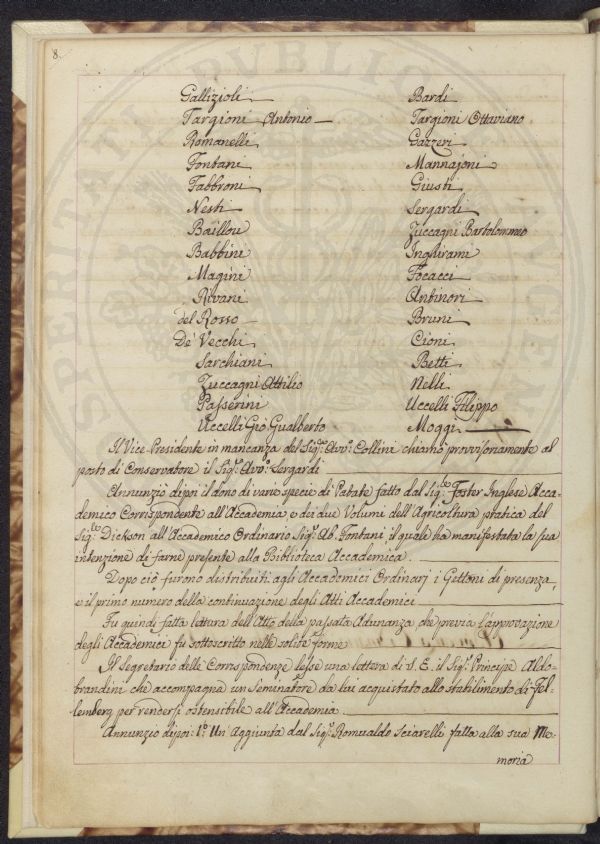 8.
Gallizioli
Targioni Antonio
Romanelli
Fontani
Fabbroni
Nesti
Baillou
Babbini
Magini
Rivani
del Rosso
De' Vecchi
Sarchiani
Zuccagni Attilio
Passerini
Uccelli Gio Gualberto
Bardi
Targioni Ottaviano
Gazzeri
Mannajoni
Giusti
Sergardi
Zuccagni Bartolommeo
Inghirami
Focacci
Antinori
Bruni
Cioni
Betti
Nelli
Uccelli Filippo
Moggi
Il Vice-Presidente in mancanza del Sig.r Avv.o Collini chiamò provvisoriamente al
posto di Conservatore il Sig.r Avv.o Sergardi
Annunziò dipoi il dono di varie specie di Patate fatto dal Sig.re Foster Inglese Acca-
demico Corrispondente all'Accademia e di due Volumi dell'Agricoltura pratica del
Sig.re Dickson all'Accademico Ordinario Sig.r Ab. Fontani, il quale ha manifestata la sua
intenzione di farne presente alla Biblioteca Accademica.
Dopo ciò furono distribuiti agli Accademici Ordinarj i Gettoni di presenza,
e il primo numero della continuazione degli Atti Accademici
Fu quindi fatta lettura dell'Atto della passata Adunanza che previa l'approvazione
degli Accademici fu sottoscritto nelle solite forme
Il Segretario delle Corrispondenze lesse una lettera di S. E. il Sig.r Principe Aldo-
brandini che accompagna un Seminatore da lui acquistato allo stabilimento di Fel-
lemberg per rendersi ostensibile all'Accademia.
Annunziò dipoi: 1.o Un'Aggiunta dal Sig.r Romualdo Sciarelli fatta alla sua Me-
moria
PUBLICAE